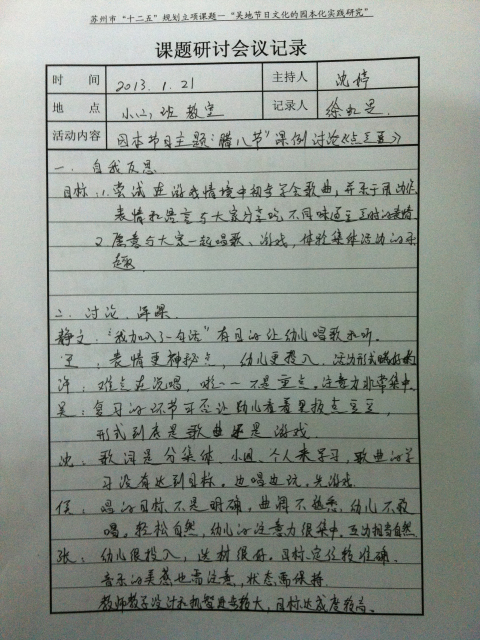 苏州市“十二五”规划立项课题—“吴地节日文化的园本化实践研究”
课题研讨会议记录
时 间 2013.1.21 主持人 沈婷
地 点 小(二)班教室 记录人 徐
活动内容 园本节日主题:腊八节”课例讨论《点豆豆》
一、自我反思
目标:1.尝试在游戏情境中初步学会歌曲,并乐于用动作
表情和语言与大家分享吃不同味道豆豆时的表情
2.愿意与大家一起唱歌、游戏,体验集体活动的乐
趣。
二、讨论、评课
静文:“我加入了一句话”有目的让幼儿唱歌来听。
王:表情更神秘点,幼儿更投入,活动形式
许:难点在说唱,啦~~不是重点。注意力非常集中。
吴:复习的环节可否让幼儿看看里报点豆豆,
形式到底是歌曲还是游戏
沈:歌词是分集体、小组、个人来学习,歌曲的学
习没有达到目标。边唱边玩,先游戏
侯:唱的目标不是明确,曲调不熟悉,幼儿不敢
唱,轻松自然,幼儿的注意力很集中,互动相当自然
张:幼儿很投入,选材很好。目标定位较准确
音乐的美感也需注意,状态需保持
教师教学设计和机智进步较大,目标达成度较高。